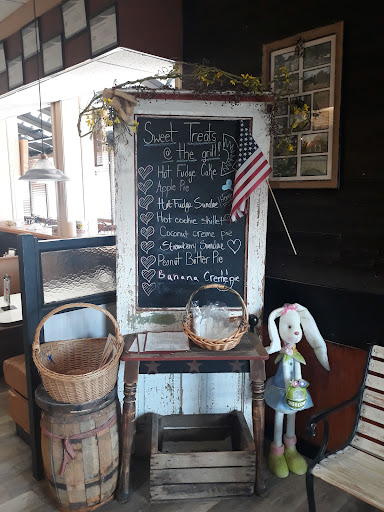 Sweet Treats
@ the grill!
Hot Fudge Cake
Apple Pie
Hot Fudge Sundae
Hot cookie skillet
Coconut creme pie
Strawberry Sundae
Peanut Butter Pie
Banana Creme pie